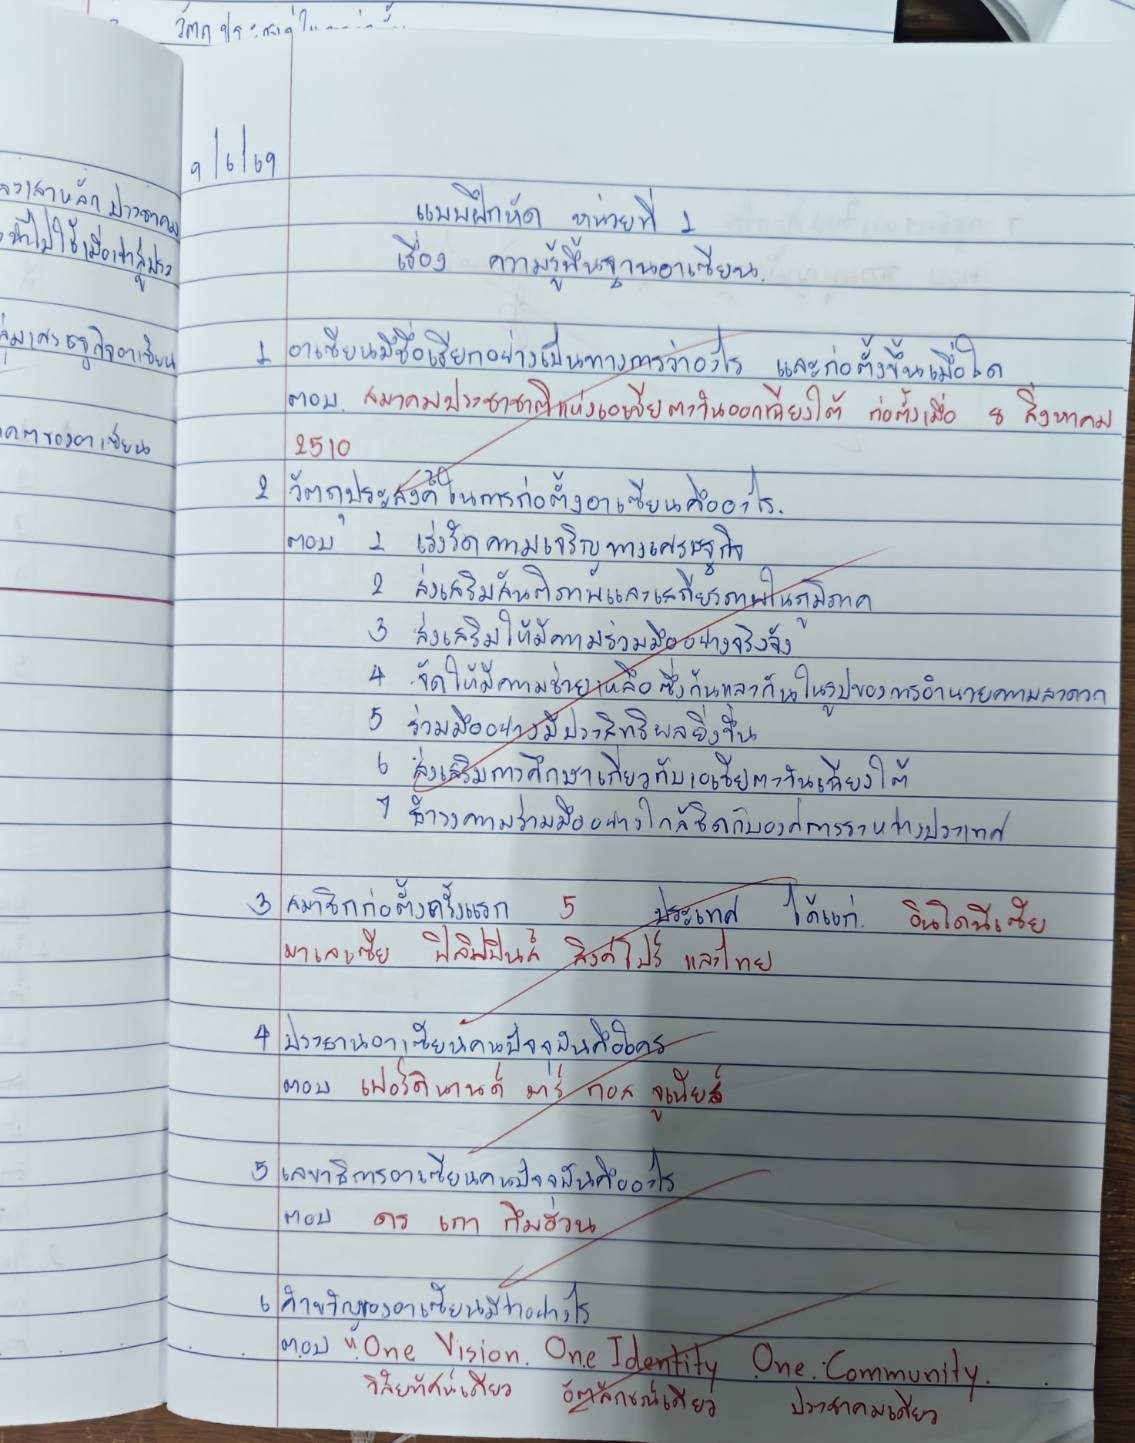 วัตถุประสงค์ใน
9/6/69
แบบฝึกหัด หน่วยที่ 1
เรื่อง ความรู้พื้นฐานอาเซียน.
1 อาเซียนมีชื่อเรียกอย่างเป็นทางการว่าอะไร และก่อตั้งขึ้นเมื่อใด
ตอบ. สมาคมประชาชาติแห่งเอเชียตะวันออกเฉียงใต้ ก่อตั้งเมื่อ 8 สิงหาคม
2510
2 วัตถุประสงค์ในการก่อตั้งอาเซียนคืออะไร.
ตอบ 1 เร่งรัดความเจริญทางเศรษฐกิจ
2 ส่งเสริมสันติภาพและเสถียรภาพในภูมิภาค
3 ส่งเสริมให้มีความร่วมมืออย่างจริงจัง
4 จัดให้มีความช่วยเหลือซึ่งกันและกันในรูปของการอำนวยความสะดวก
5 ร่วมมืออย่างมีประสิทธิผลยิ่งขึ้น
6 ส่งเสริมการศึกษาเกี่ยวกับเอเชียตะวันเฉียงใต้
7 ธำรงความร่วมมืออย่างใกล้ชิดกับองค์การระหว่างประเทศ
3 สมาชิกก่อตั้งครั้งแรก 5 ประเทศ ได้แก่. อินโดนีเซีย
มาเลเซีย ฟิลิปปินส์ สิงคโปร์ และไทย
4 ประธานอาเซียนคนปัจจุบันคือใคร
ตอบ เฟอร์ดินานด์ มาร์ กอส จูเนียร์
5 เลขาธิการอาเซียนคนปัจจุบันคืออะไร
ตอบ ดร เกา กึมฮวน
6 คำขวัญของอาเซียนมีว่าอย่างไร
ตอบ "One Vision. One Identity One Community.
วิสัยทัศน์เดียว อัตลักษณ์เดียว ประชาคมเดียว